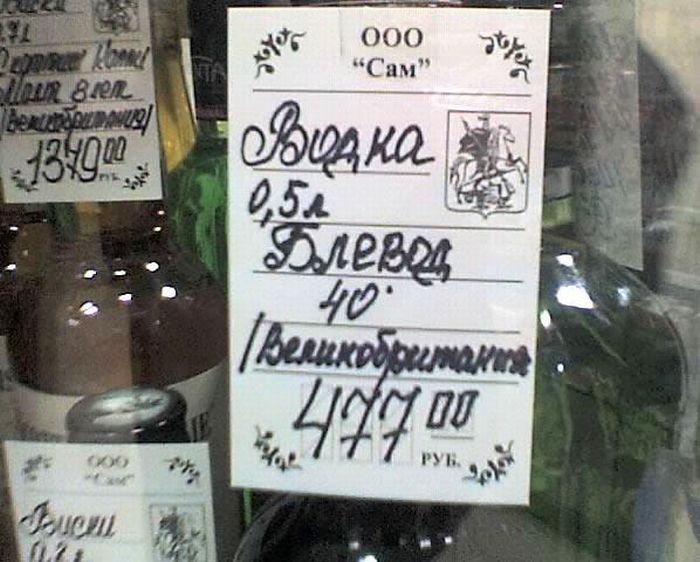 Виски
0,7л
Молт 8 лет
/Великобритания/
1379 00
РУБ.
ООО
“Сам”
Водка
0,5л
Блевод
40°
/Великобритания
477 00
РУБ.
ООО
“Сам”
Виски